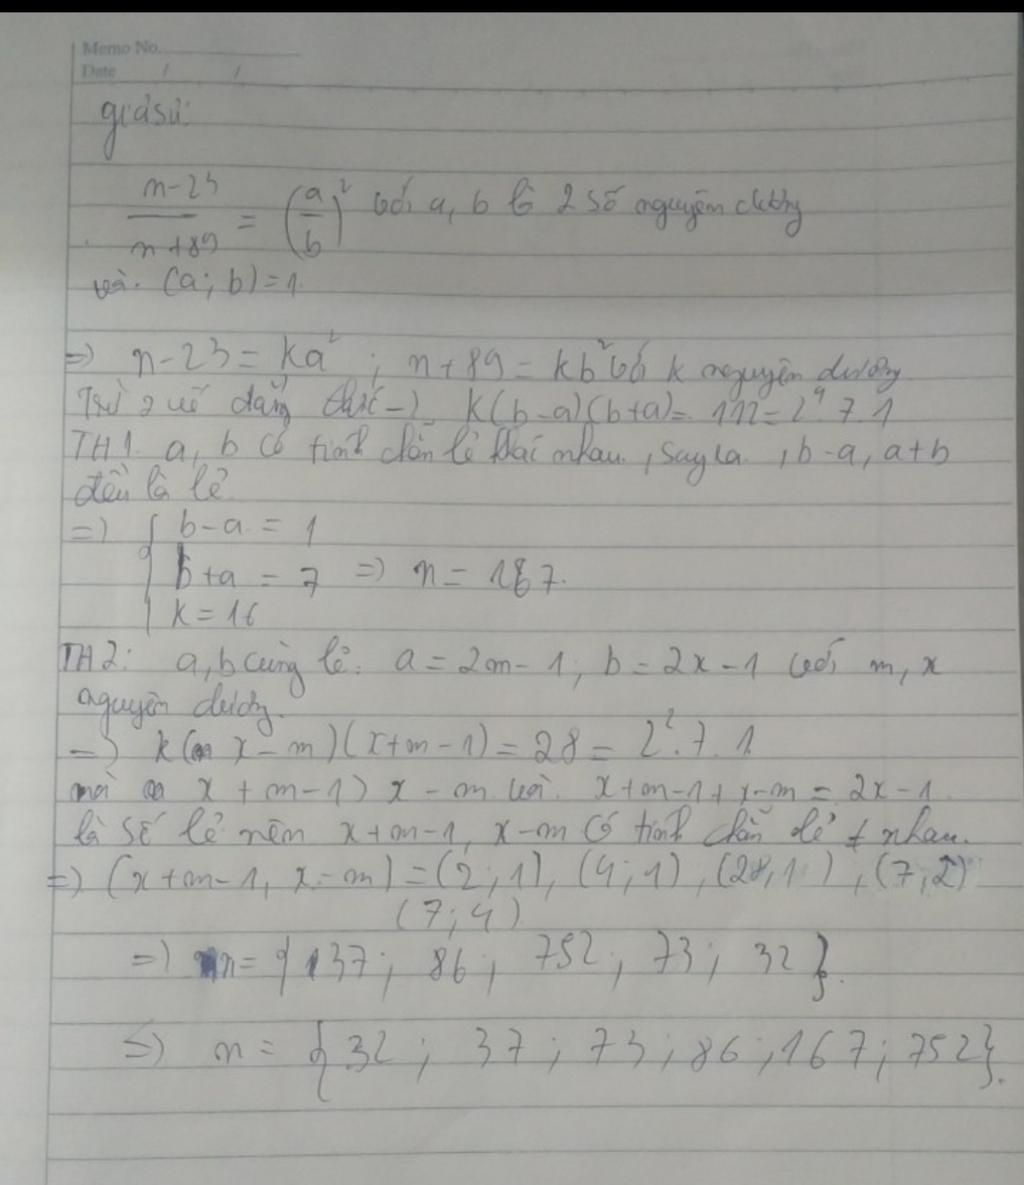 Memo No.
Date / /
giả sử:
n-23/n+89 = (a/b)² với a, b là 2 số nguyên dương
và. (a; b) = 1.
=) n-23 = ka² ; n+89 = kb² với k nguyên dương
Trừ 2 vế đẳng thức -) k(b-a)(b+a) = 112 = 2⁴.7.1
TH1. a, b có tính chẵn lẻ khác nhau, suy ra, b-a, a+b
đều là lẻ
=) { b-a = 1
b+a = 7 =) n = 167.
k = 16
TH2: a, b cùng lẻ. a = 2m-1; b = 2x-1 với m, x
nguyên dương.
=) k(x-m)(x+m-1) = 28 = 2².7.1
mà x+m-1 > x-m với. x+m-1+x-m = 2x-1
là số lẻ nên x+m-1, x-m có tính chẵn lẻ ≠ nhau.
=) (x+m-1, x-m) = (2;1), (4;1), (28,1), (7;2)
(7;4)
=) n = {37; 86; 752; 73; 32}.
=) n = {32; 37; 73; 86; 167; 752}.